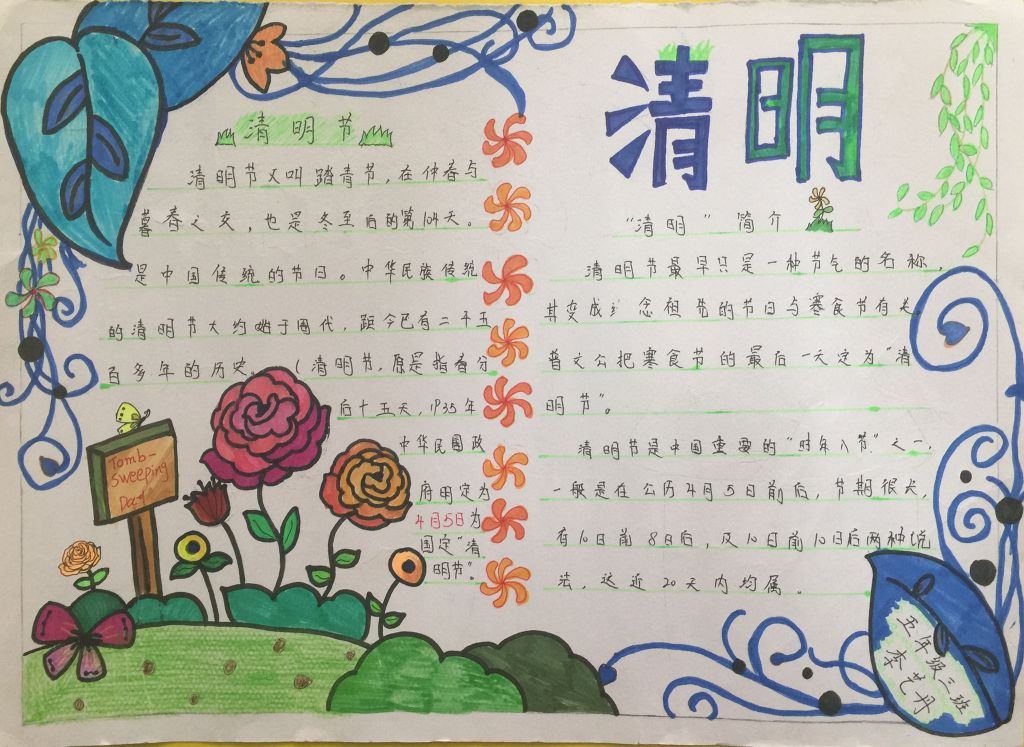 清明节
清明节又叫踏青节，在仲春与
暮春之交，也是冬至后的第104天。
是中国传统的节日。中华民族传统
的清明节大约始于周代，距今已有二千五
百多年的历史。（清明节，原是指春分
后十五天，1935年
中华民国政
府明定为
4月5日为
国定“清
明节”。
Tomb-
Sweeping
Day
清明
“清明”简介
清明节最早只是一种节气的名称，
其变成纪念祖先的节日与寒食节有关，
晋文公把寒食节的最后一天定为“清
明节”。
清明节是中国重要的“时年八节”之一，
一般是在公历4月5日前后，节期很长，
有10日前8日后，及10日前10日后两种说
法，这近20天内均属。
五年级三班
李艺丹